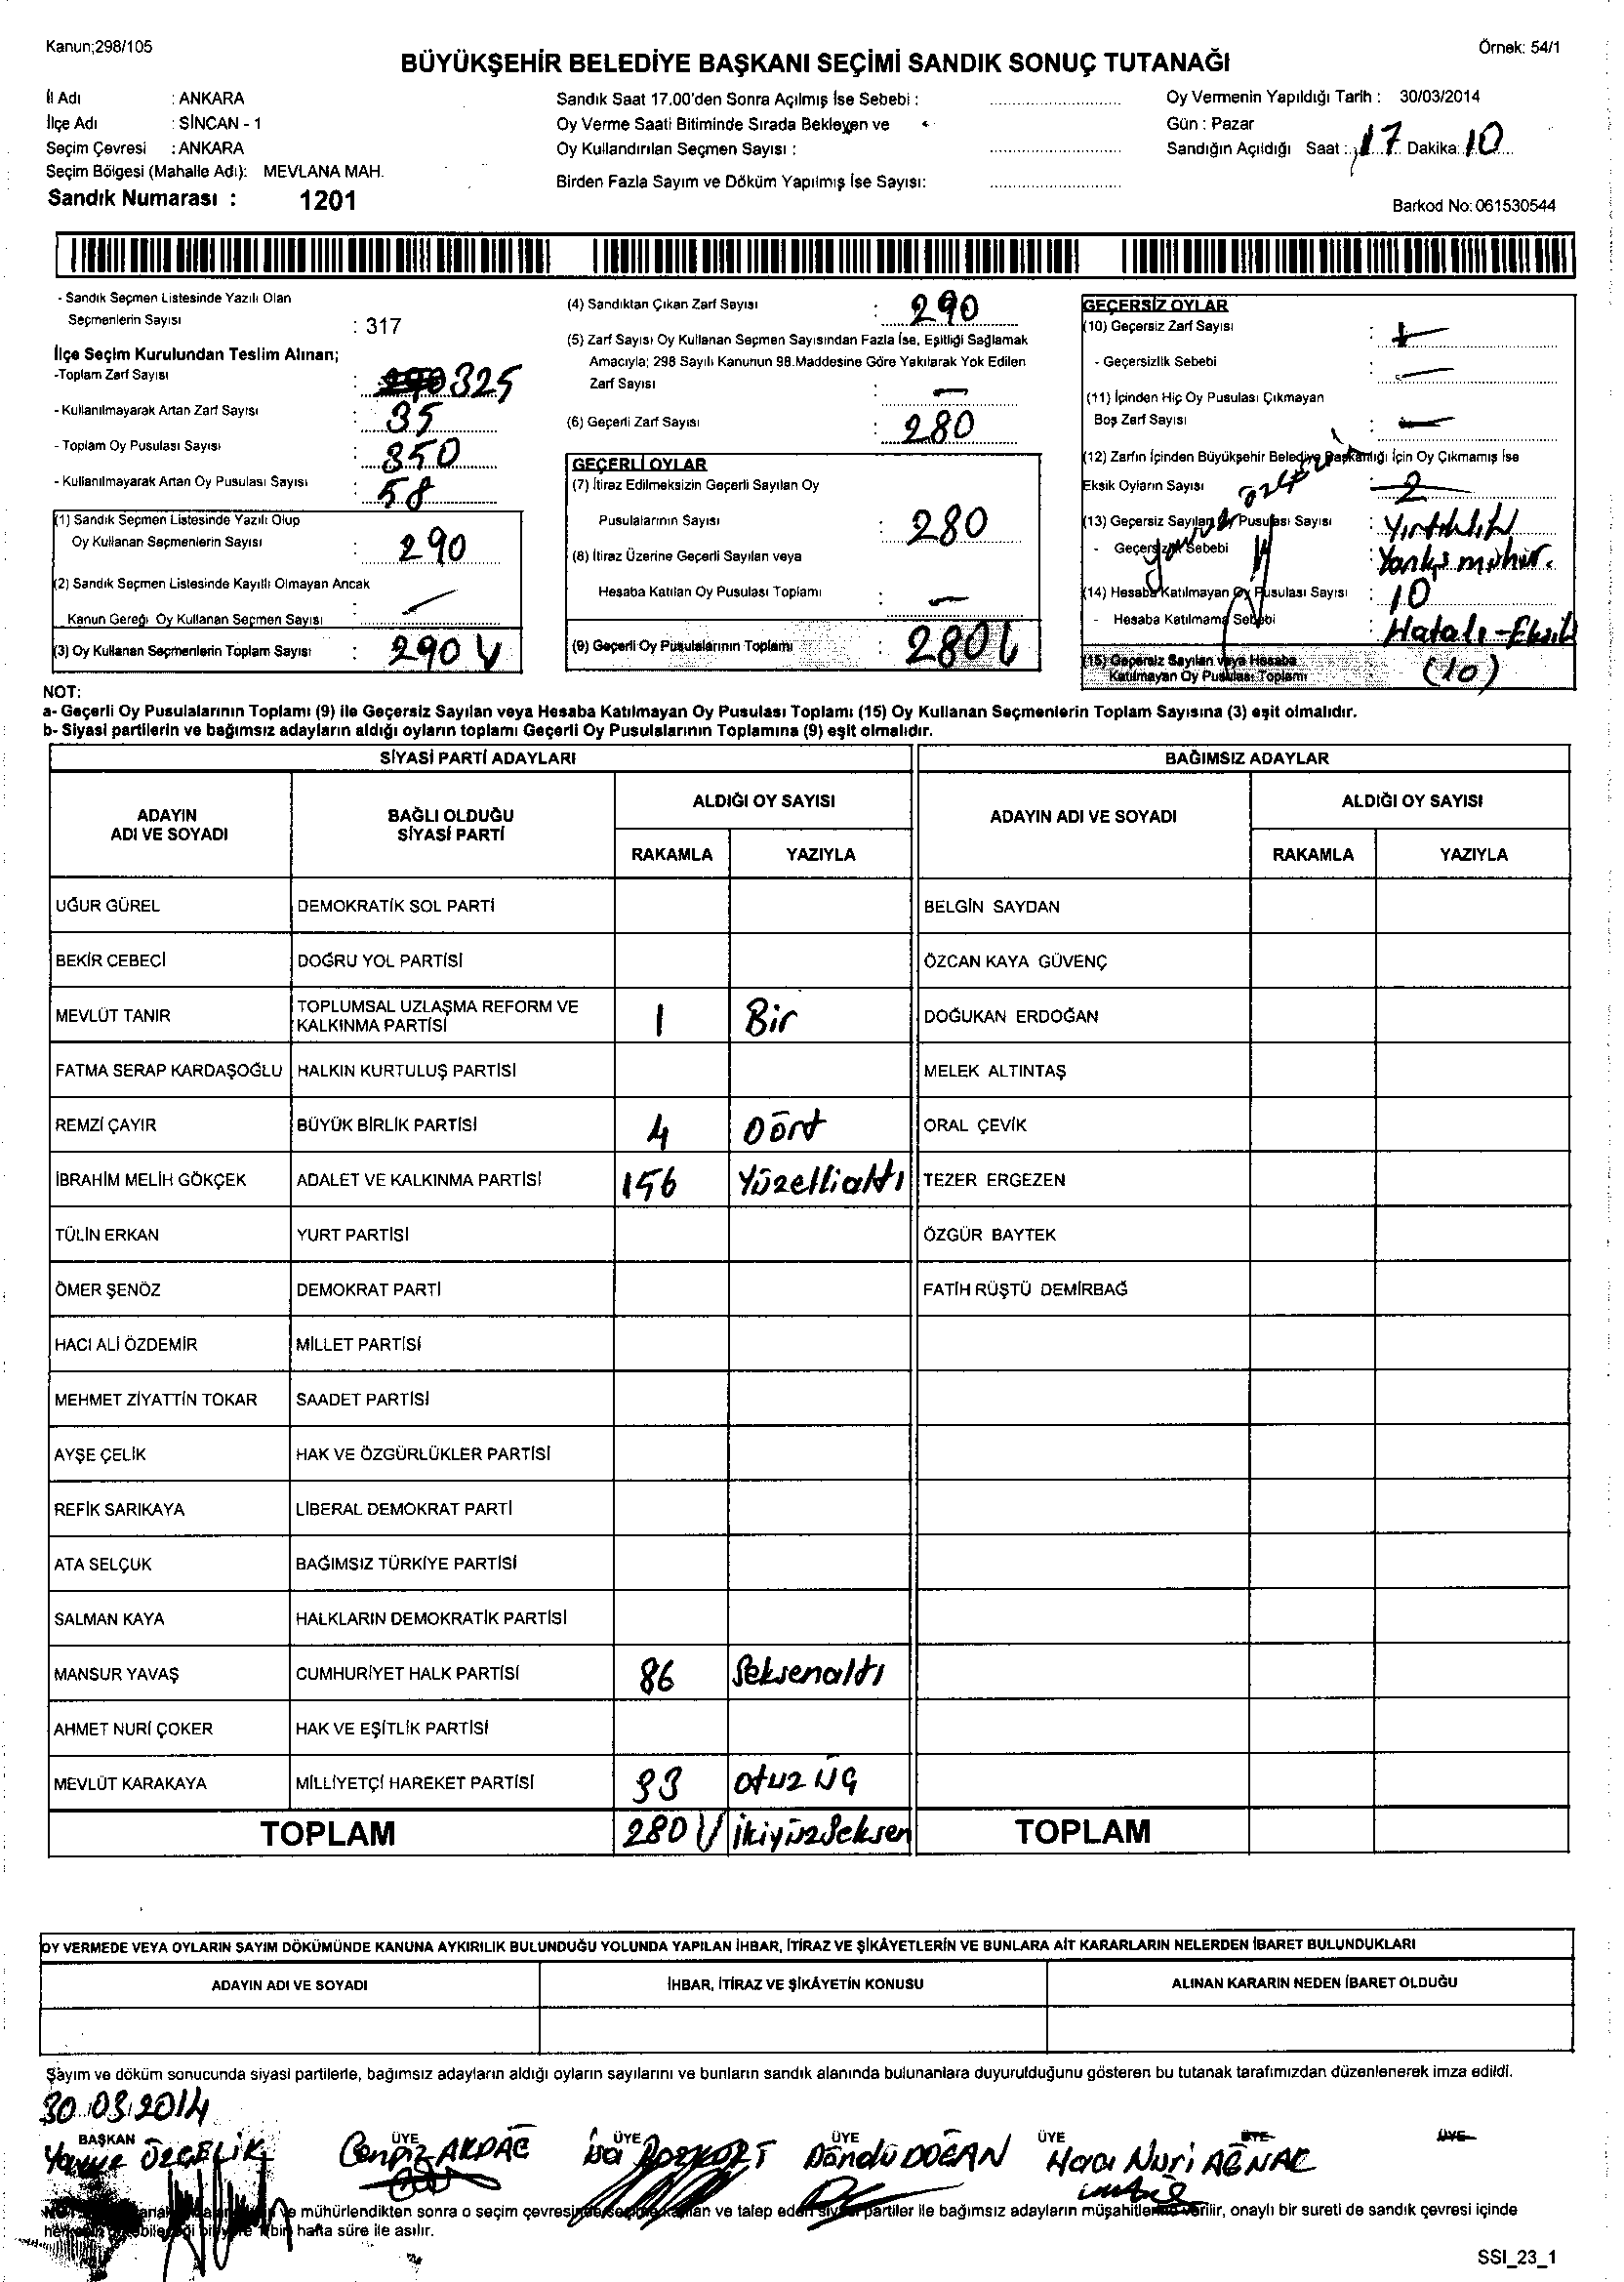 Kanun;298/105
Örnek: 54/1
BÜYÜKŞEHİR BELEDİYE BAŞKANI SEÇİMİ SANDIK SONUÇ TUTANAĞI
İl Adı : ANKARA
İlçe Adı : SİNCAN - 1
Seçim Çevresi : ANKARA
Seçim Bölgesi (Mahalle Adı): MEVLANA MAH.
Sandık Numarası : 1201
Sandık Saat 17.00'den Sonra Açılmış İse Sebebi :
Oy Verme Saati Bitiminde Sırada Bekleyen ve
Oy Kullandırılan Seçmen Sayısı :
Birden Fazla Sayım ve Döküm Yapılmış İse Sayısı:
Oy Vermenin Yapıldığı Tarih : 30/03/2014
Gün : Pazar
Sandığın Açıldığı Saat : 17 Dakika: 10
Barkod No: 061530544
- Sandık Seçmen Listesinde Yazılı Olan
Seçmenlerin Sayısı : 317
İlçe Seçim Kurulundan Teslim Alınan;
-Toplam Zarf Sayısı : 325
- Kullanılmayarak Artan Zarf Sayısı : 35
- Toplam Oy Pusulası Sayısı : 350
- Kullanılmayarak Artan Oy Pusulası Sayısı : 58
(1) Sandık Seçmen Listesinde Yazılı Olup
Oy Kullanan Seçmenlerin Sayısı : 290
(2) Sandık Seçmen Listesinde Kayıtlı Olmayan Ancak
Kanun Gereği Oy Kullanan Seçmen Sayısı :
(3) Oy Kullanan Seçmenlerin Toplam Sayısı : 290
(4) Sandıktan Çıkan Zarf Sayısı : 290
(5) Zarf Sayısı Oy Kullanan Seçmen Sayısından Fazla İse, Eşitliği Sağlamak
Amacıyla; 298 Sayılı Kanunun 98.Maddesine Göre Yakılarak Yok Edilen
Zarf Sayısı : —
(6) Geçerli Zarf Sayısı : 280
GEÇERLİ OYLAR
(7) İtiraz Edilmeksizin Geçerli Sayılan Oy
Pusulalarının Sayısı : 280
(8) İtiraz Üzerine Geçerli Sayılan veya
Hesaba Katılan Oy Pusulası Toplamı : —
(9) Geçerli Oy Pusulalarının Toplamı : 280
GEÇERSİZ OYLAR
(10) Geçersiz Zarf Sayısı :
- Geçersizlik Sebebi : —
(11) İçinden Hiç Oy Pusulası Çıkmayan
Boş Zarf Sayısı : —
(12) Zarfın İçinden Büyükşehir Belediye Başkanlığı İçin Oy Çıkmamış İse
Eksik Oyların Sayısı : 2
(13) Geçersiz Sayılan Oy Pusulası Sayısı : Yırtıklık
- Geçersizlik Sebebi : Yanlış mühür.
(14) Hesaba Katılmayan Oy Pusulası Sayısı : 10
- Hesaba Katılmama Sebebi : Hatalı - Eksik
(15) Geçersiz Sayılan veya Hesaba
Katılmayan Oy Pusulası Toplamı (10)
NOT:
a- Geçerli Oy Pusulalarının Toplamı (9) ile Geçersiz Sayılan veya Hesaba Katılmayan Oy Pusulası Toplamı (15) Oy Kullanan Seçmenlerin Toplam Sayısına (3) eşit olmalıdır.
b- Siyasi partilerin ve bağımsız adayların aldığı oyların toplamı Geçerli Oy Pusulalarının Toplamına (9) eşit olmalıdır.
SİYASİ PARTİ ADAYLARI BAĞIMSIZ ADAYLAR
ADAYIN ADI VE SOYADI BAĞLI OLDUĞU SİYASİ PARTİ ALDIĞI OY SAYISI ADAYIN ADI VE SOYADI ALDIĞI OY SAYISI
RAKAMLA YAZIYLA RAKAMLA YAZIYLA
UĞUR GÜREL DEMOKRATİK SOL PARTİ BELGİN SAYDAN
BEKİR CEBECİ DOĞRU YOL PARTİSİ ÖZCAN KAYA GÜVENÇ
MEVLÜT TANIR TOPLUMSAL UZLAŞMA REFORM VE KALKINMA PARTİSİ 1 Bir DOĞUKAN ERDOĞAN
FATMA SERAP KARDAŞOĞLU HALKIN KURTULUŞ PARTİSİ MELEK ALTINTAŞ
REMZİ ÇAYIR BÜYÜK BİRLİK PARTİSİ 4 Dört ORAL ÇEVİK
İBRAHİM MELİH GÖKÇEK ADALET VE KALKINMA PARTİSİ 156 Yüzellialtı TEZER ERGEZEN
TÜLİN ERKAN YURT PARTİSİ ÖZGÜR BAYTEK
ÖMER ŞENÖZ DEMOKRAT PARTİ FATİH RÜŞTÜ DEMİRBAĞ
HACI ALİ ÖZDEMİR MİLLET PARTİSİ
MEHMET ZİYATTİN TOKAR SAADET PARTİSİ
AYŞE ÇELİK HAK VE ÖZGÜRLÜKLER PARTİSİ
REFİK SARIKAYA LİBERAL DEMOKRAT PARTİ
ATA SELÇUK BAĞIMSIZ TÜRKİYE PARTİSİ
SALMAN KAYA HALKLARIN DEMOKRATİK PARTİSİ
MANSUR YAVAŞ CUMHURİYET HALK PARTİSİ 86 Seksenaltı
AHMET NURİ ÇOKER HAK VE EŞİTLİK PARTİSİ
MEVLÜT KARAKAYA MİLLİYETÇİ HAREKET PARTİSİ 33 Otuz üç
TOPLAM 280 İkiyüzSeksen TOPLAM
OY VERMEDE VEYA OYLARIN SAYIM DÖKÜMÜNDE KANUNA AYKIRILIK BULUNDUĞU YOLUNDA YAPILAN İHBAR, İTİRAZ VE ŞİKÂYETLERİN VE BUNLARA AİT KARARLARIN NELERDEN İBARET BULUNDUKLARI
ADAYIN ADI VE SOYADI İHBAR, İTİRAZ VE ŞİKÂYETİN KONUSU ALINAN KARARIN NEDEN İBARET OLDUĞU
Sayım ve döküm sonucunda siyasi partilerle, bağımsız adayların aldığı oyların sayılarını ve bunların sandık alanında bulunanlara duyurulduğunu gösteren bu tutanak tarafımızdan düzenlenerek imza edildi.
30.03.2014
BAŞKAN ÜYE ÜYE ÜYE ÜYE ÜYE ÜYE
ÖZÇELİK Cengiz AKDAĞ İsa BOZKURT Döndü DOĞAN Hacı Nuri AĞNAK
mühürlendikten sonra o seçim çevresinde seçime katılan ve talep eden siyasi partiler ile bağımsız adayların müşahitlerine verilir, onaylı bir sureti de sandık çevresi içinde
bir hafta süre ile asılır.
SSI_23_1